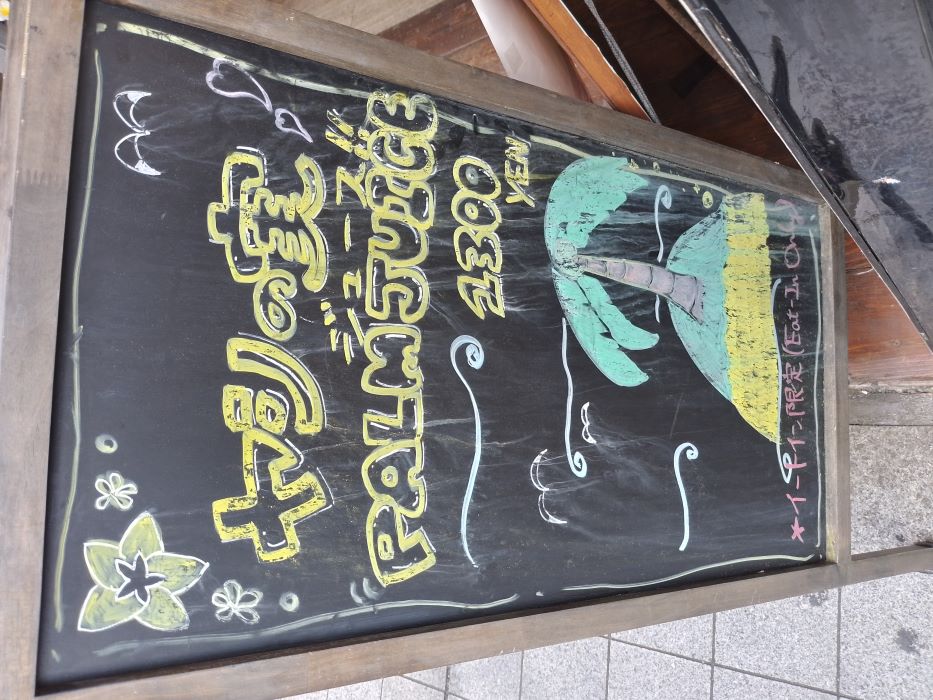 ヤシの実
ジュース
PALM JUICE
YEN
★イートイン限定 (Eat-In Only)